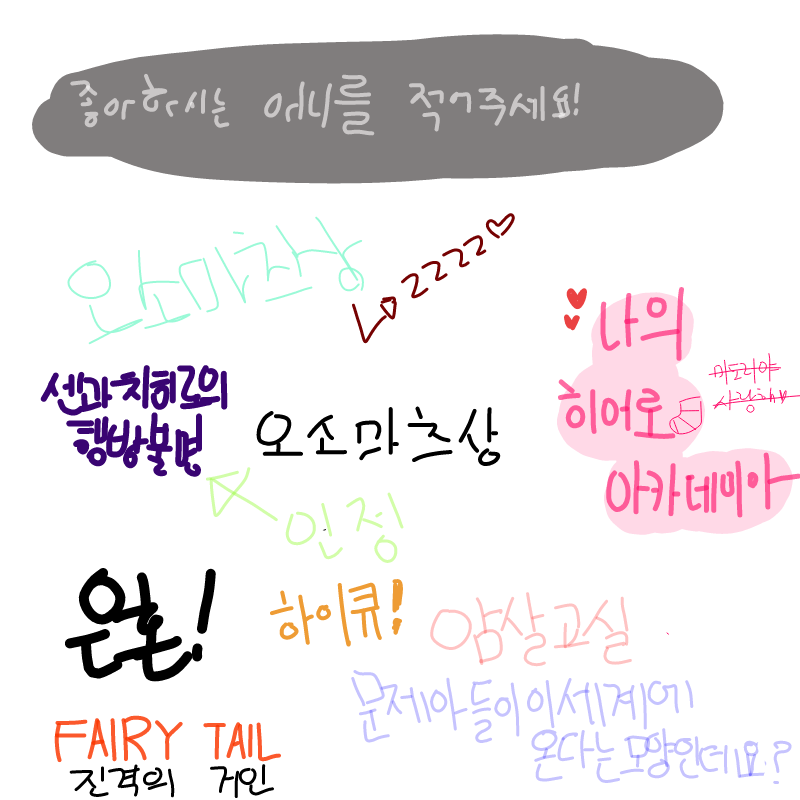 좋아하시는 애니를 적어주세요!
오소마츠상
2222♡
나의
히어로
아카데미아
미도리야
사랑해
센과 치히로의
행방불명
오소마츠상
인정
은혼!
하이큐!
암살교실
문제아들이 이세계에
온다는 모양인데요?
FAIRY TAIL
진격의 거인